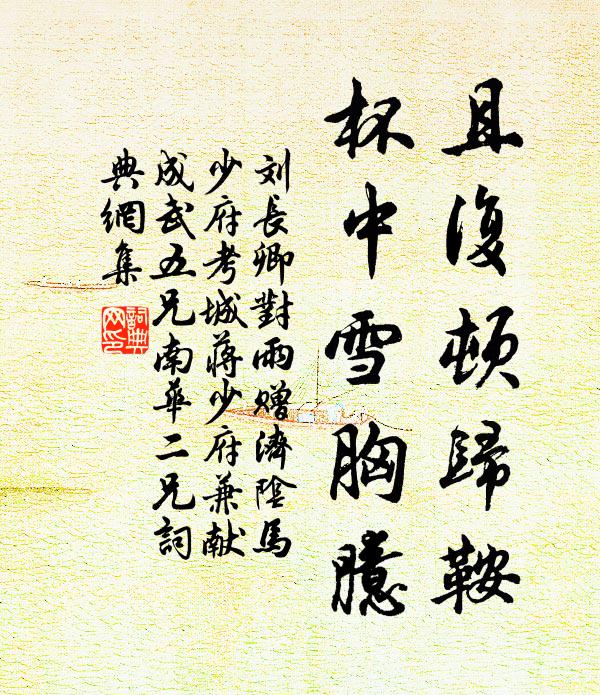 且復頓歸鞍
杯中雪胸臆
刘長卿對雨贈濟陰馬
少府考城蔣少府兼献
成武五兄南華二兄詞
典網集
詞典
網印